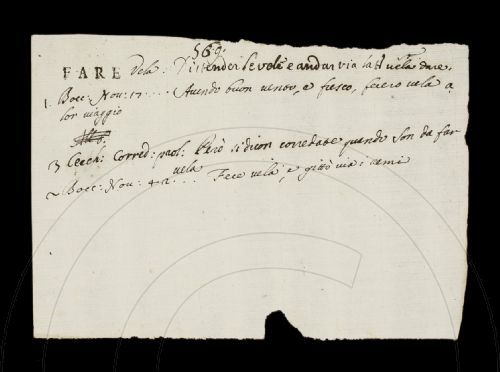 569.
FARE Vela: Distender le vele e andar via la
1. Bocc: Nov: 17 .... Avendo buon vento, e fresco, fecero vela a
lor viaggio
3 Cecch: Corred: prol: Però si dicon corredate quando son da far
vela
2 Bocc: Nov: 42 .... Fece vela, e gittò via i remi